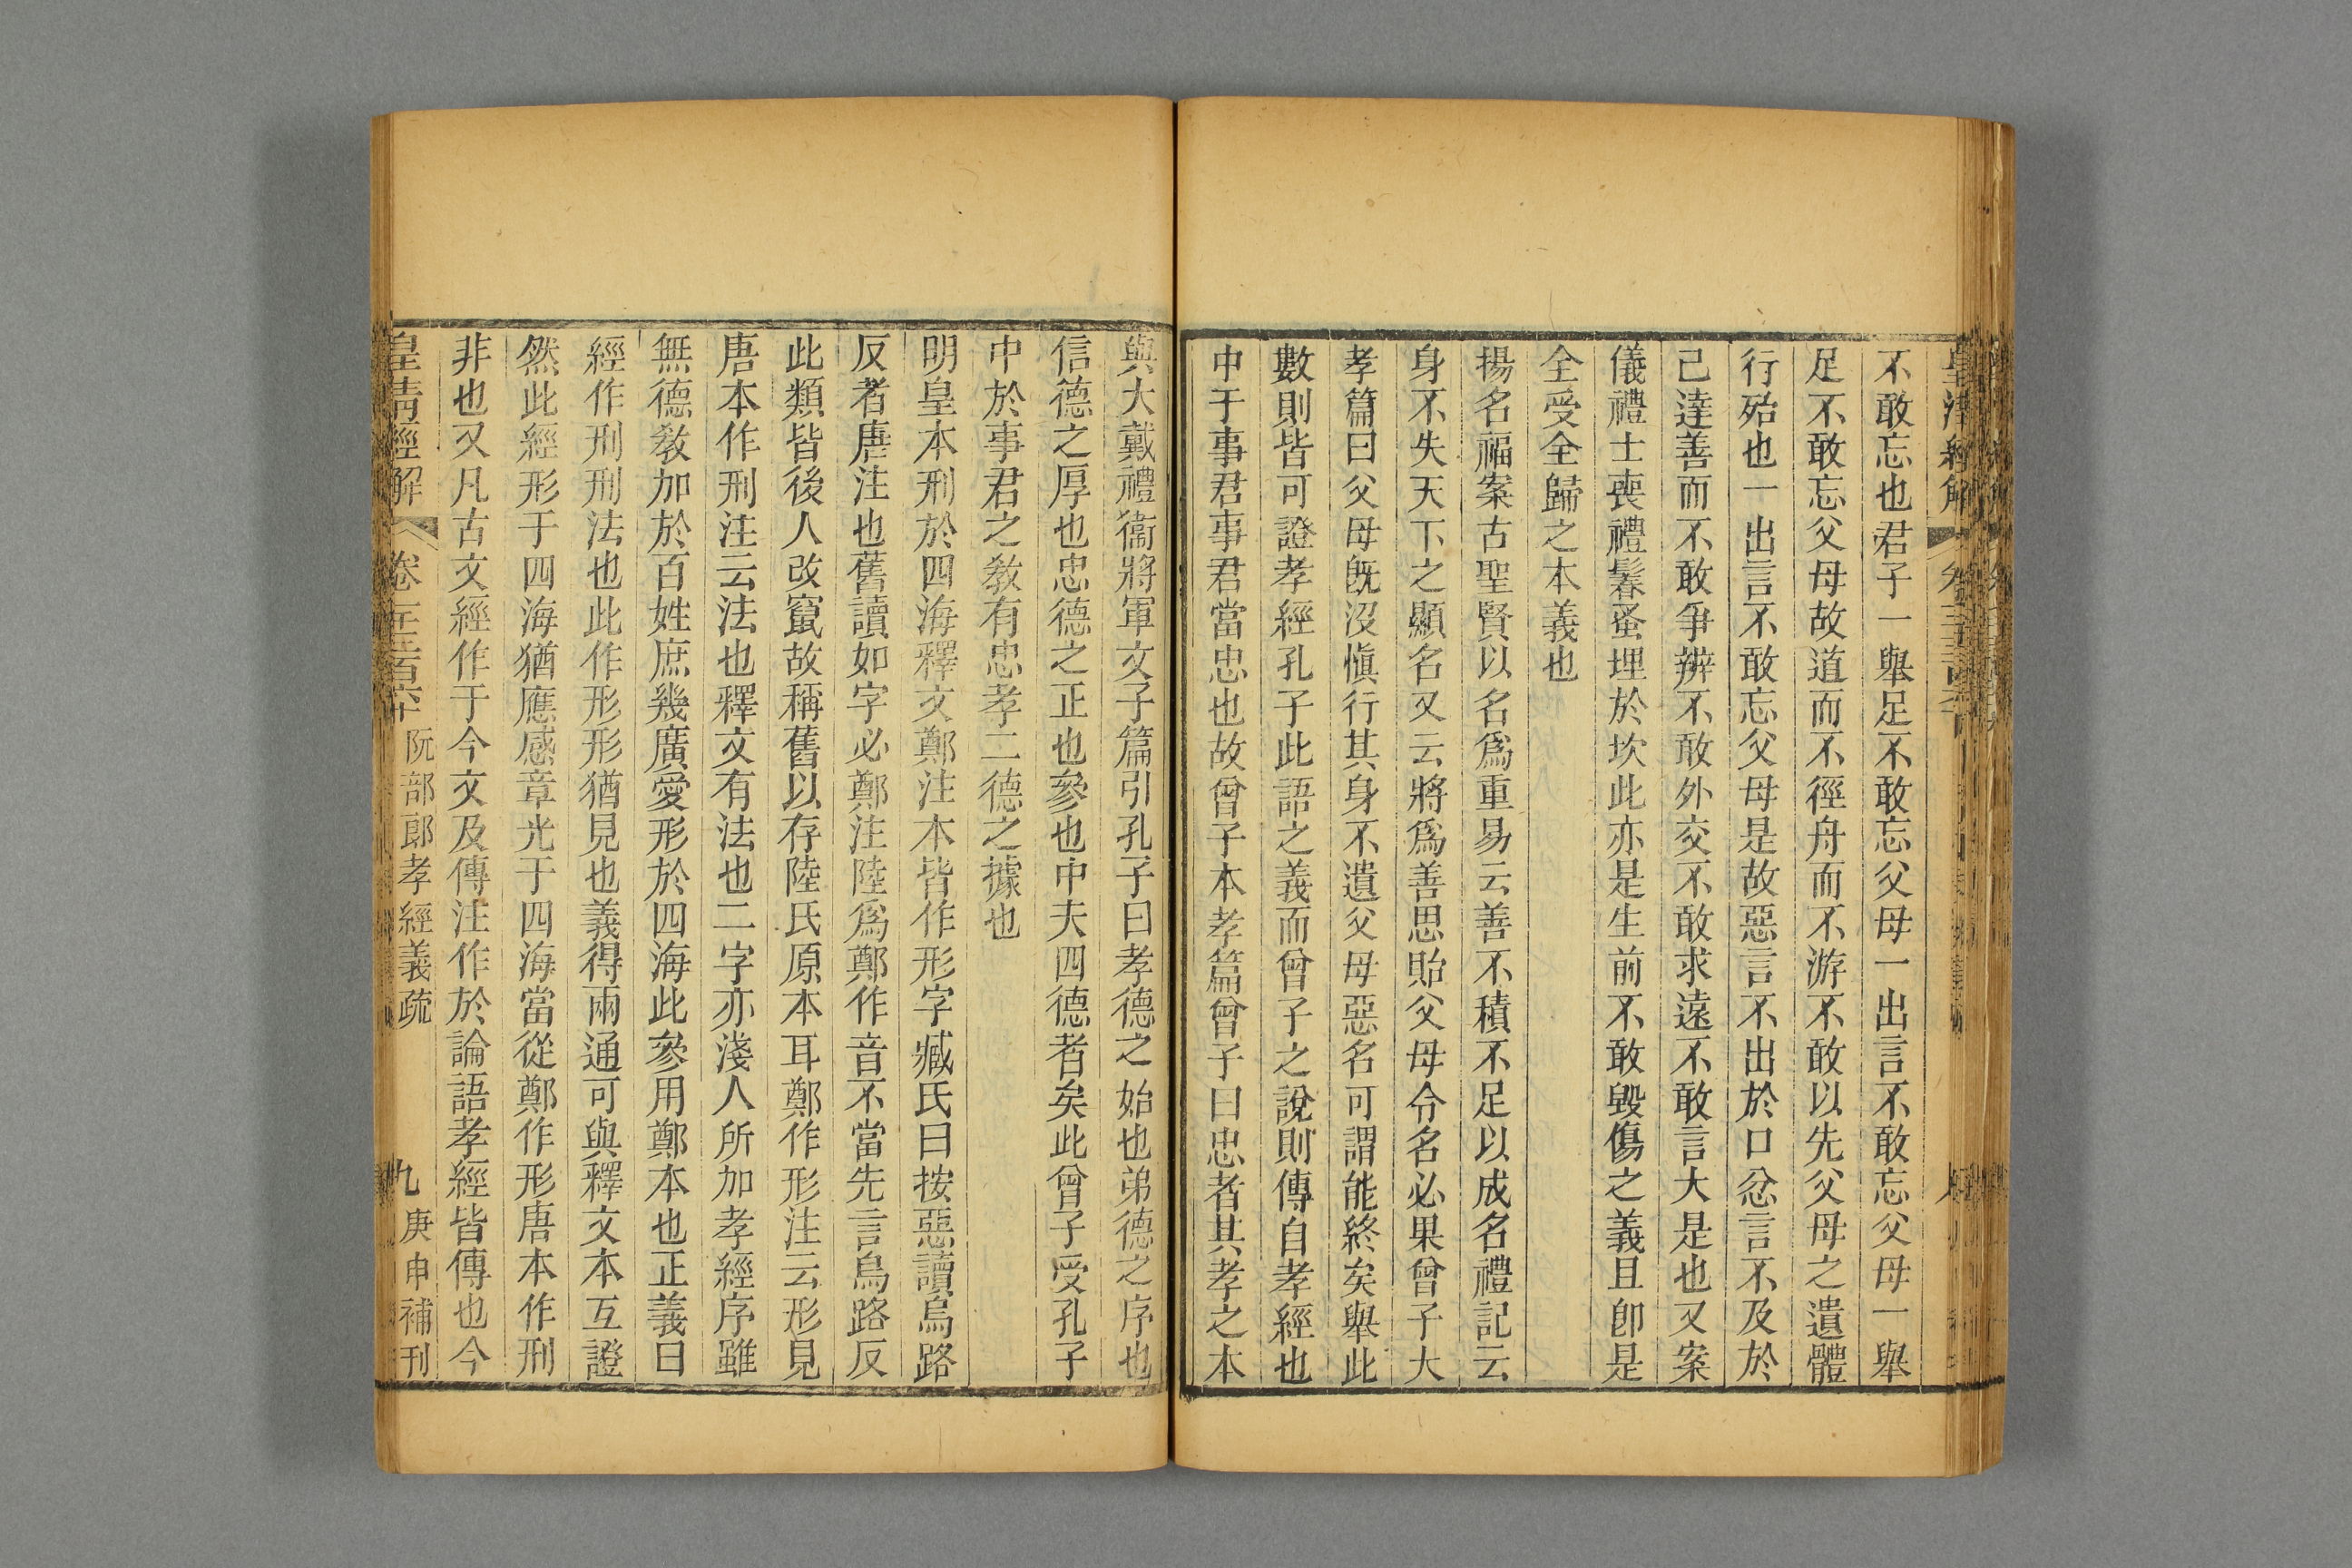 不敢忘也君子一舉足不敢忘父母一出言不敢忘父母一舉
足不敢忘父母故道而不徑舟而不游不敢以先父母之遺體
行殆也一出言不敢忘父母是故惡言不出於口忿言不及於
己達善而不敢爭辨不敢外交不敢求遠不敢言大是也又案
儀禮士喪禮鬊蚤埋於坎此亦是生前不敢毀傷之義且卽是
全受全歸之本義也
揚名福案古聖賢以名爲重易云善不積不足以成名禮記云
身不失天下之顯名又云將爲善思貽父母令名必果曾子大
孝篇曰父母旣沒愼行其身不遺父母惡名可謂能終矣舉此
數則皆可證孝經孔子此語之義而曾子之說則傳自孝經也
中于事君事君當忠也故曾子本孝篇曾子曰忠者其孝之本
與大戴禮衞將軍文子篇引孔子曰孝德之始也弟德之序也
信德之厚也忠德之正也參也中夫四德者矣此曾子受孔子
中於事君之敎有忠孝二德之據也
明皇本刑於四海釋文鄭注本皆作形字臧氏曰按惡讀烏路
反者唐注也舊讀如字必鄭注陸爲鄭作音不當先言烏路反
此類皆後人改竄故稱舊以存陸氏原本耳鄭作形注云形見
唐本作刑注云法也釋文有法也二字亦淺人所加孝經序雖
無德敎加於百姓庶幾廣愛形於四海此參用鄭本也正義曰
經作刑刑法也此作形形猶見也義得兩通可與釋文本互證
然此經形于四海猶應感章光于四海當從鄭作形唐本作刑
非也又凡古文經作于今文及傳注作於論語孝經皆傳也今
皇淸經解 卷一千三百六十 阮部郎孝經義疏 九 庚申補刊